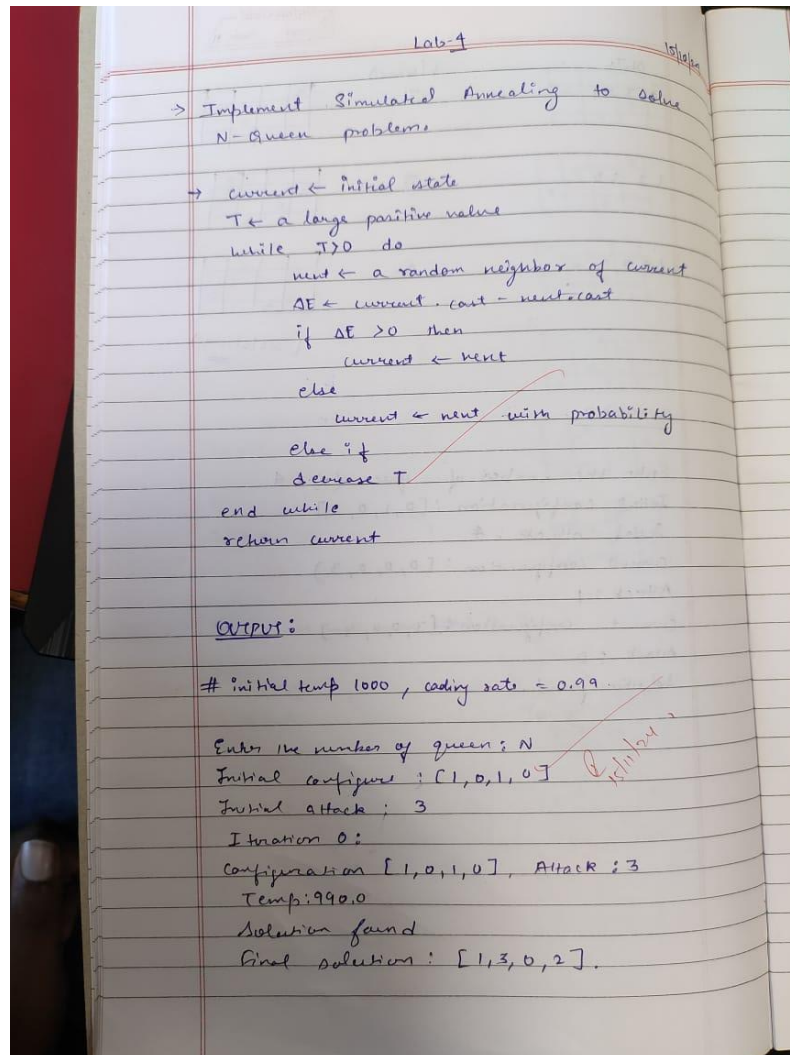 Lab-4
15/10/24
→ Implement Simulated Annealing to solve
N-Queen problem.
→ current ← initial state
T ← a large positive value
while T>0 do
next ← a random neighbor of current
ΔE ← current.cost - next.cost
if ΔE >0 then
current ← next
else
current ← next with probability
else if
decrease T
end while
return current
OUTPUT:
# initial temp 1000, cooling rate = 0.99
Enter the number of queen: N
Initial configure : [1,0,1,0]
15/11/24
Initial attack : 3
Iteration 0:
Configuration [1,0,1,0], Attack : 3
Temp: 990.0
Solution found
Final solution : [1,3,0,2].